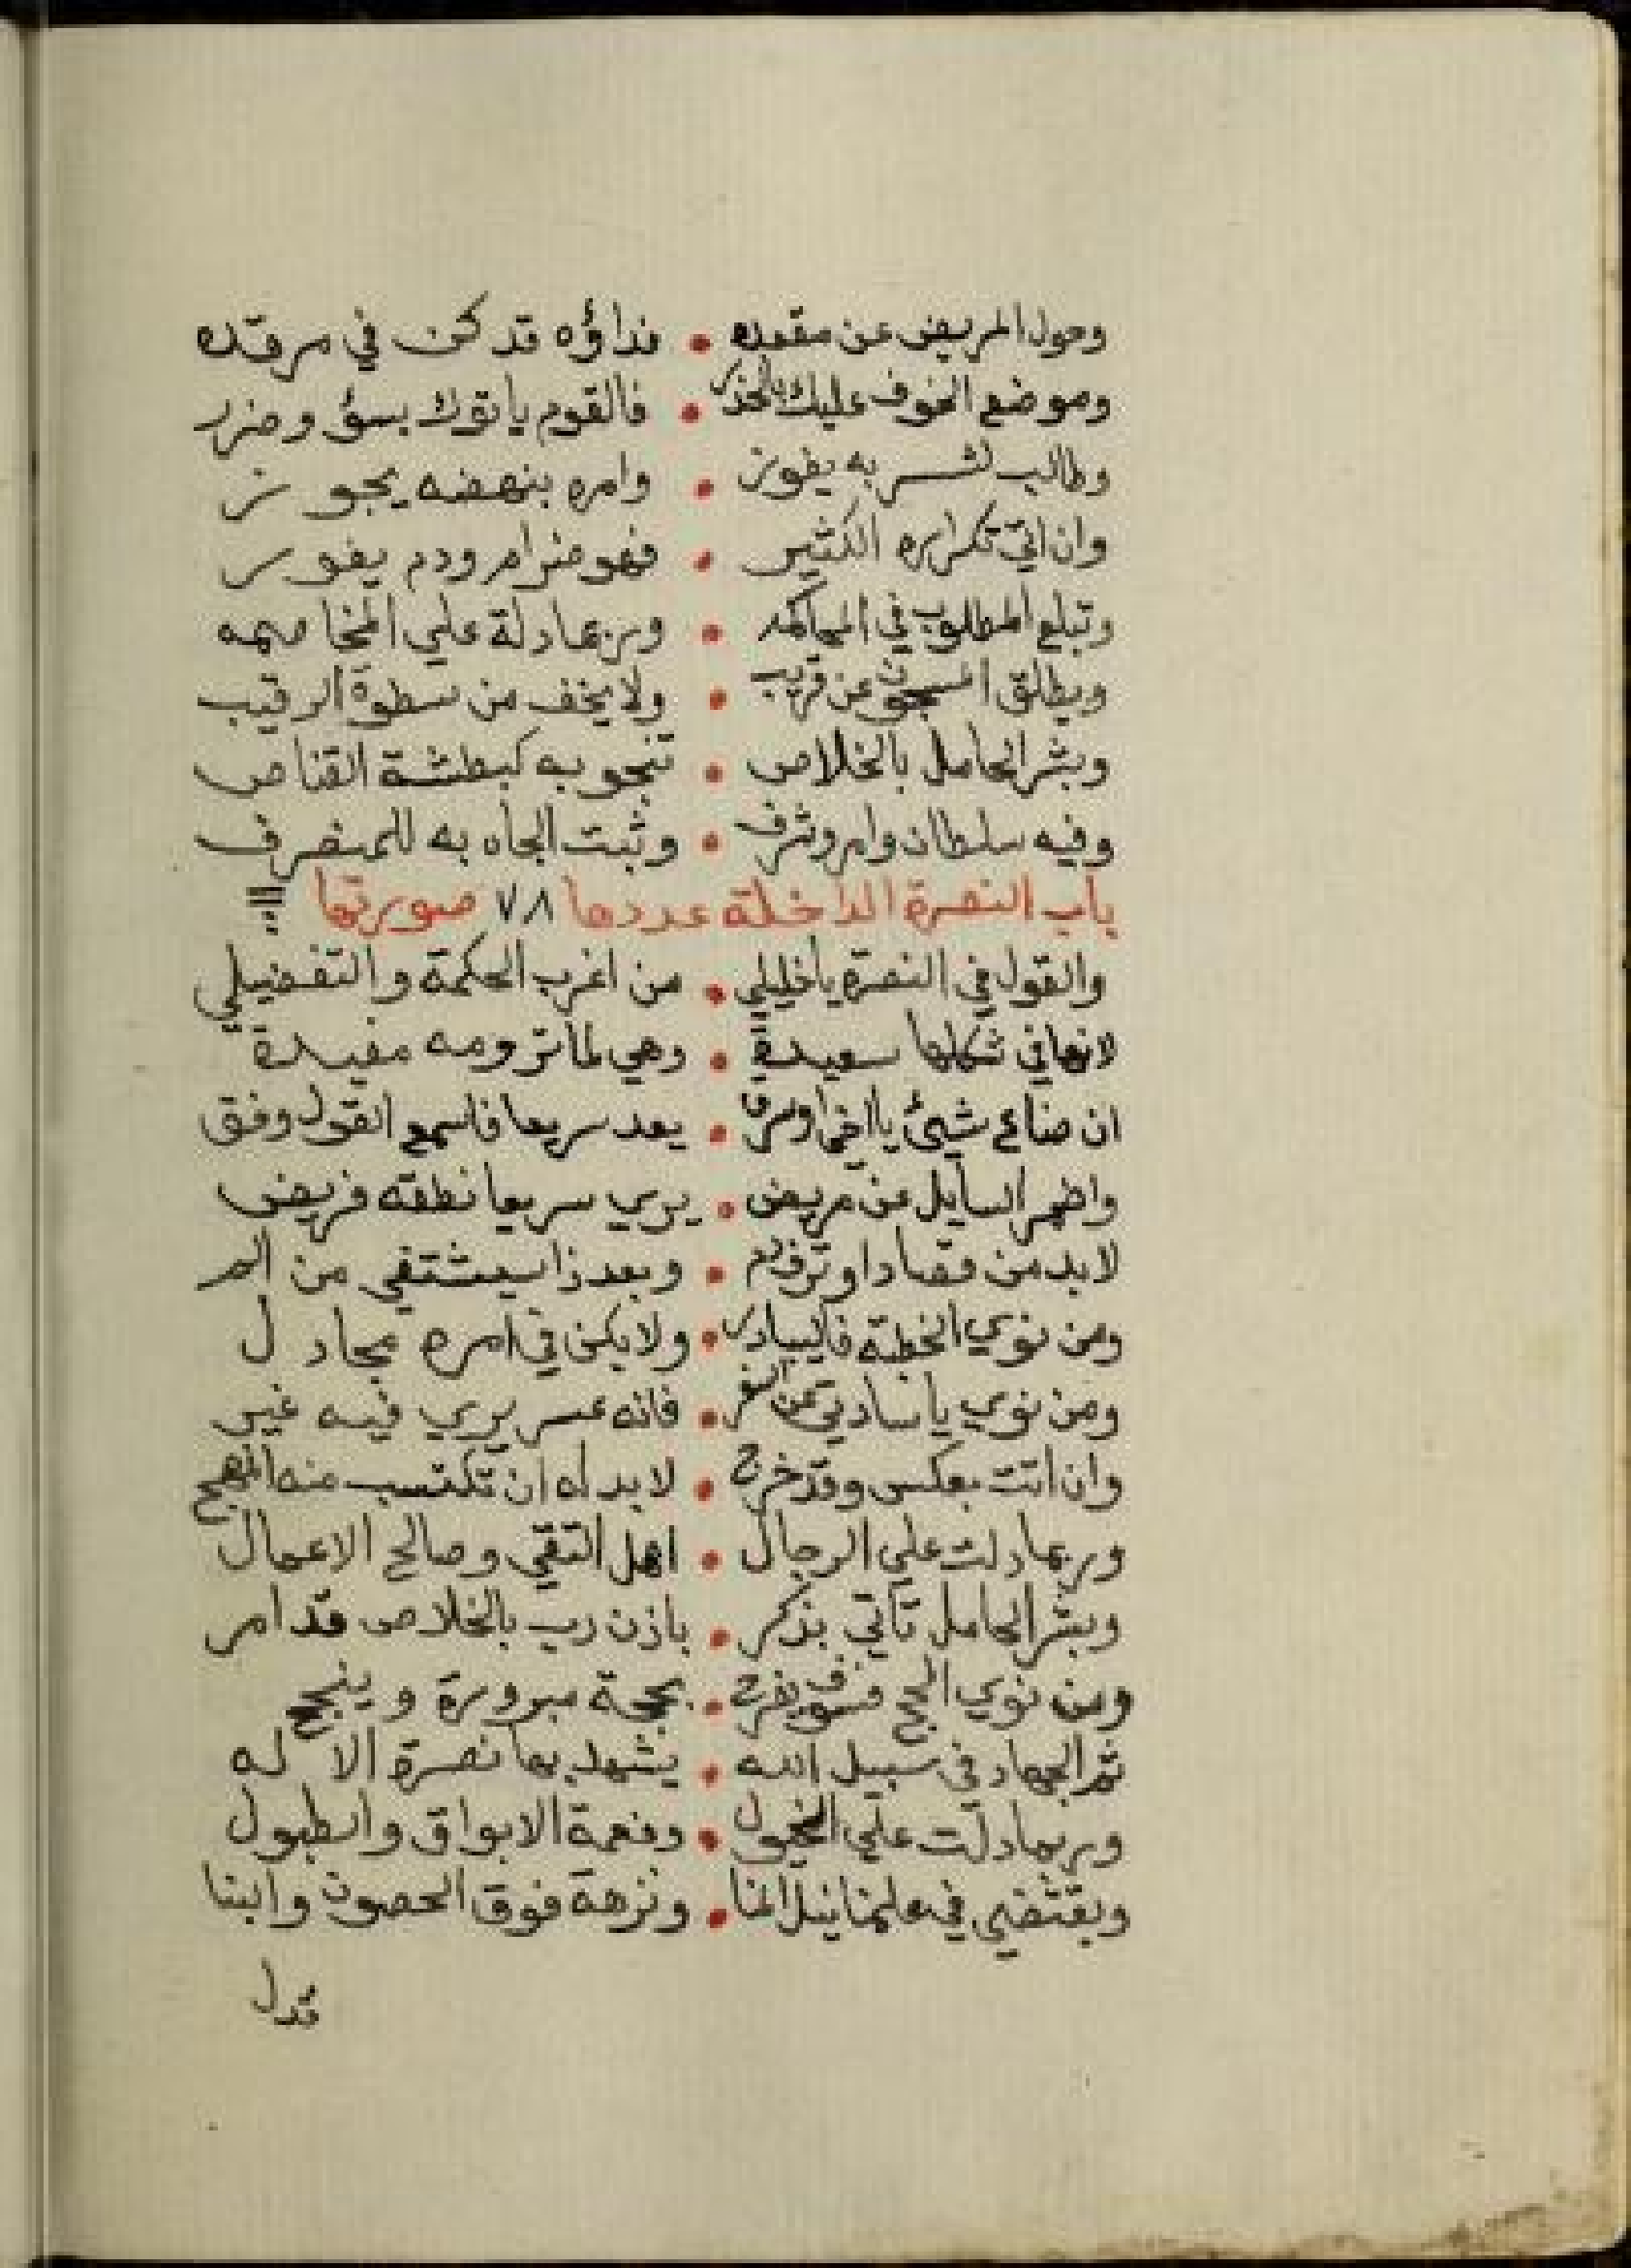 وحول المريض عن مقعده • فداؤه قد كن في مرقده
وموضع الخوف عليك بالحذر • فالقوم ياتوك بسؤ وضرر
وطالب لشر به يفوز • وامره بنهضه يجوز
وان اتي تكراره الكثير • فهو ضرام ودم يفور
وتبلع المطلوب في المحاكمه • وربما دلة علي المخاصمه
ويطلق المسجون عن قريب • ولا يخف من سطوة الرقيب
وبشر الحامل بالخلاص • تنجو به كبطشة القناص
وفيه سلطان وامر وشرف • وثبت الجاه به للمنصرف
باب النصرة الداخلة عددها ٧٨ صورتها
والقول في النصرة يا خليلي • من اغرب الحكمة والتفضيلي
لانها في شكلها سعيدة • وهي لما ترومه مفيدة
ان ضاع شيئ يا اخي او سرق • يعد سريعا فاسمع القول وفق
واضمر السايل عن مريض • يري سريعا نطقه فريض
لا بد من فصاد او نزف دم • وبعد ذا سيشتفي من الم
ومن نوي الخطبة فاليبادر • ولا يكن في امره مجادل
ومن نوي يا سادتي عن السفر • فانه عسر يري فيه غير
وان اتت بعكس وقد خرج • لا بد له ان تكتسب منه المهج
وربما دلت علي الرجال • اهل التقي وصالح الاعمال
وبشر الحامل تاتي بذكر • باذن رب بالخلاص قد امر
ومن نوي الحج فسوف يفرح • بحجة مبرورة وينجح
ثم الجهاد في سبيل الله • يشهد بها نصرة الاله
وربما دلت علي الخيول • ونغمة الابواق والطبول
ويقتضي في علمنا نيل المنا • ونزهة فوق الحصون والبنا
تدل